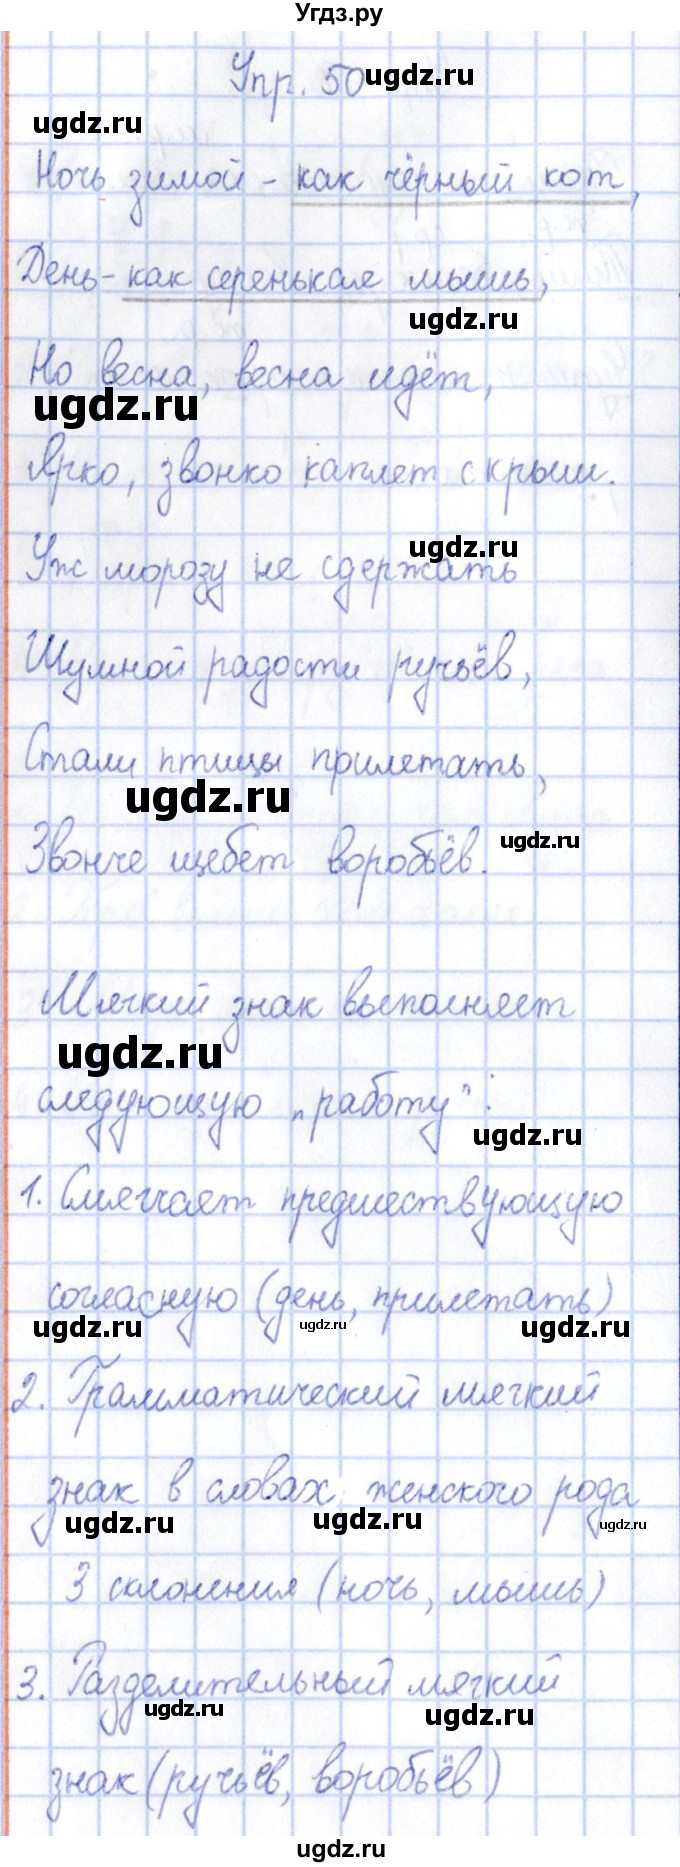 Угдз.ру
Упр. 50
ugdz.ru
ugdz.ru
Ночь зимой - как чёрный кот,
День - как серенькая мышь,
ugdz.ru
Но весна, весна идёт,
ugdz.ru
Ярко, звонко каплет с крыш.
ugdz.ru
Уж морозу не сдержать
Шумной радости ручьёв,
Стали птицы прилетать,
ugdz.ru
ugdz.ru
Звонче щебет воробьёв.
Мягкий знак выполняет
ugdz.ru
следующую „работу":
ugdz.ru
1. Смягчает предшествующую
согласную (день, прилетать)
ugdz.ru ugdz.ru ugdz.ru
2. Грамматический мягкий
знак в словах женского рода
ugdz.ru ugdz.ru ugdz.ru
3 склонения (ночь, мышь)
3. Разделительный мягкий
ugdz.ru ugdz.ru
знак (ручьёв, воробьёв)
ugdz.ru